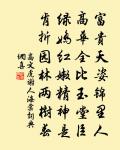 富貴天姿錦里人
高華全比玉堂臣
綠嬌紅嫩精神甚
肯折園林兩樹春
高文虎謝人海棠詞典
網喜